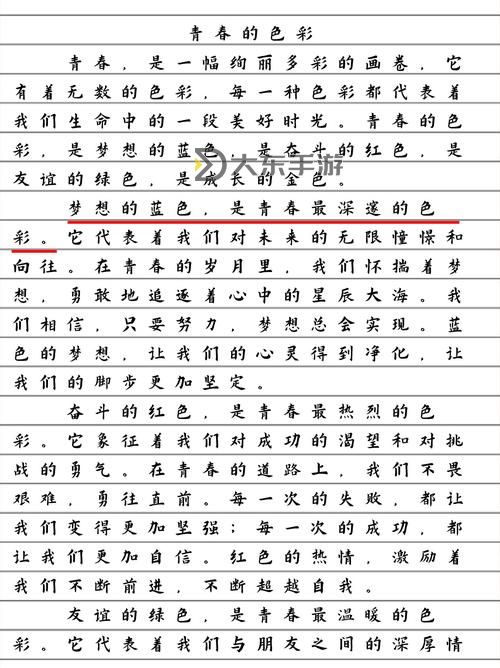 青春的色彩
青春，是一幅绚丽多彩的画卷，它
有着无数的色彩，每一种色彩都代表着
我们生命中的一段美好时光。青春的色
彩，是梦想的蓝色，是奋斗的红色，是
友谊的绿色，是成长的金色。
大东手游
梦想的蓝色，是青春最深邃的色
彩。它代表着我们对未来的无限憧憬和
向往。在青春的岁月里，我们怀揣着梦
想，勇敢地追逐着心中的星辰大海。我
们相信，只要努力，梦想总会实现。蓝
色的梦想，让我们的心灵得到净化，让
我们的脚步更加坚定。
奋斗的红色，是青春最热烈的色
彩。它象征着我们对成功的渴望和对挑
战的勇气。在青春的道路上，我们不畏
艰难，勇往直前。每一次的失败，都让
我们变得更加坚强；每一次的成功，都
让我们更加自信。红色的热情，激励着
我们不断前进，不断超越自我。
友谊的绿色，是青春最温暖的色
彩。它代表着我们与朋友之间的深厚情